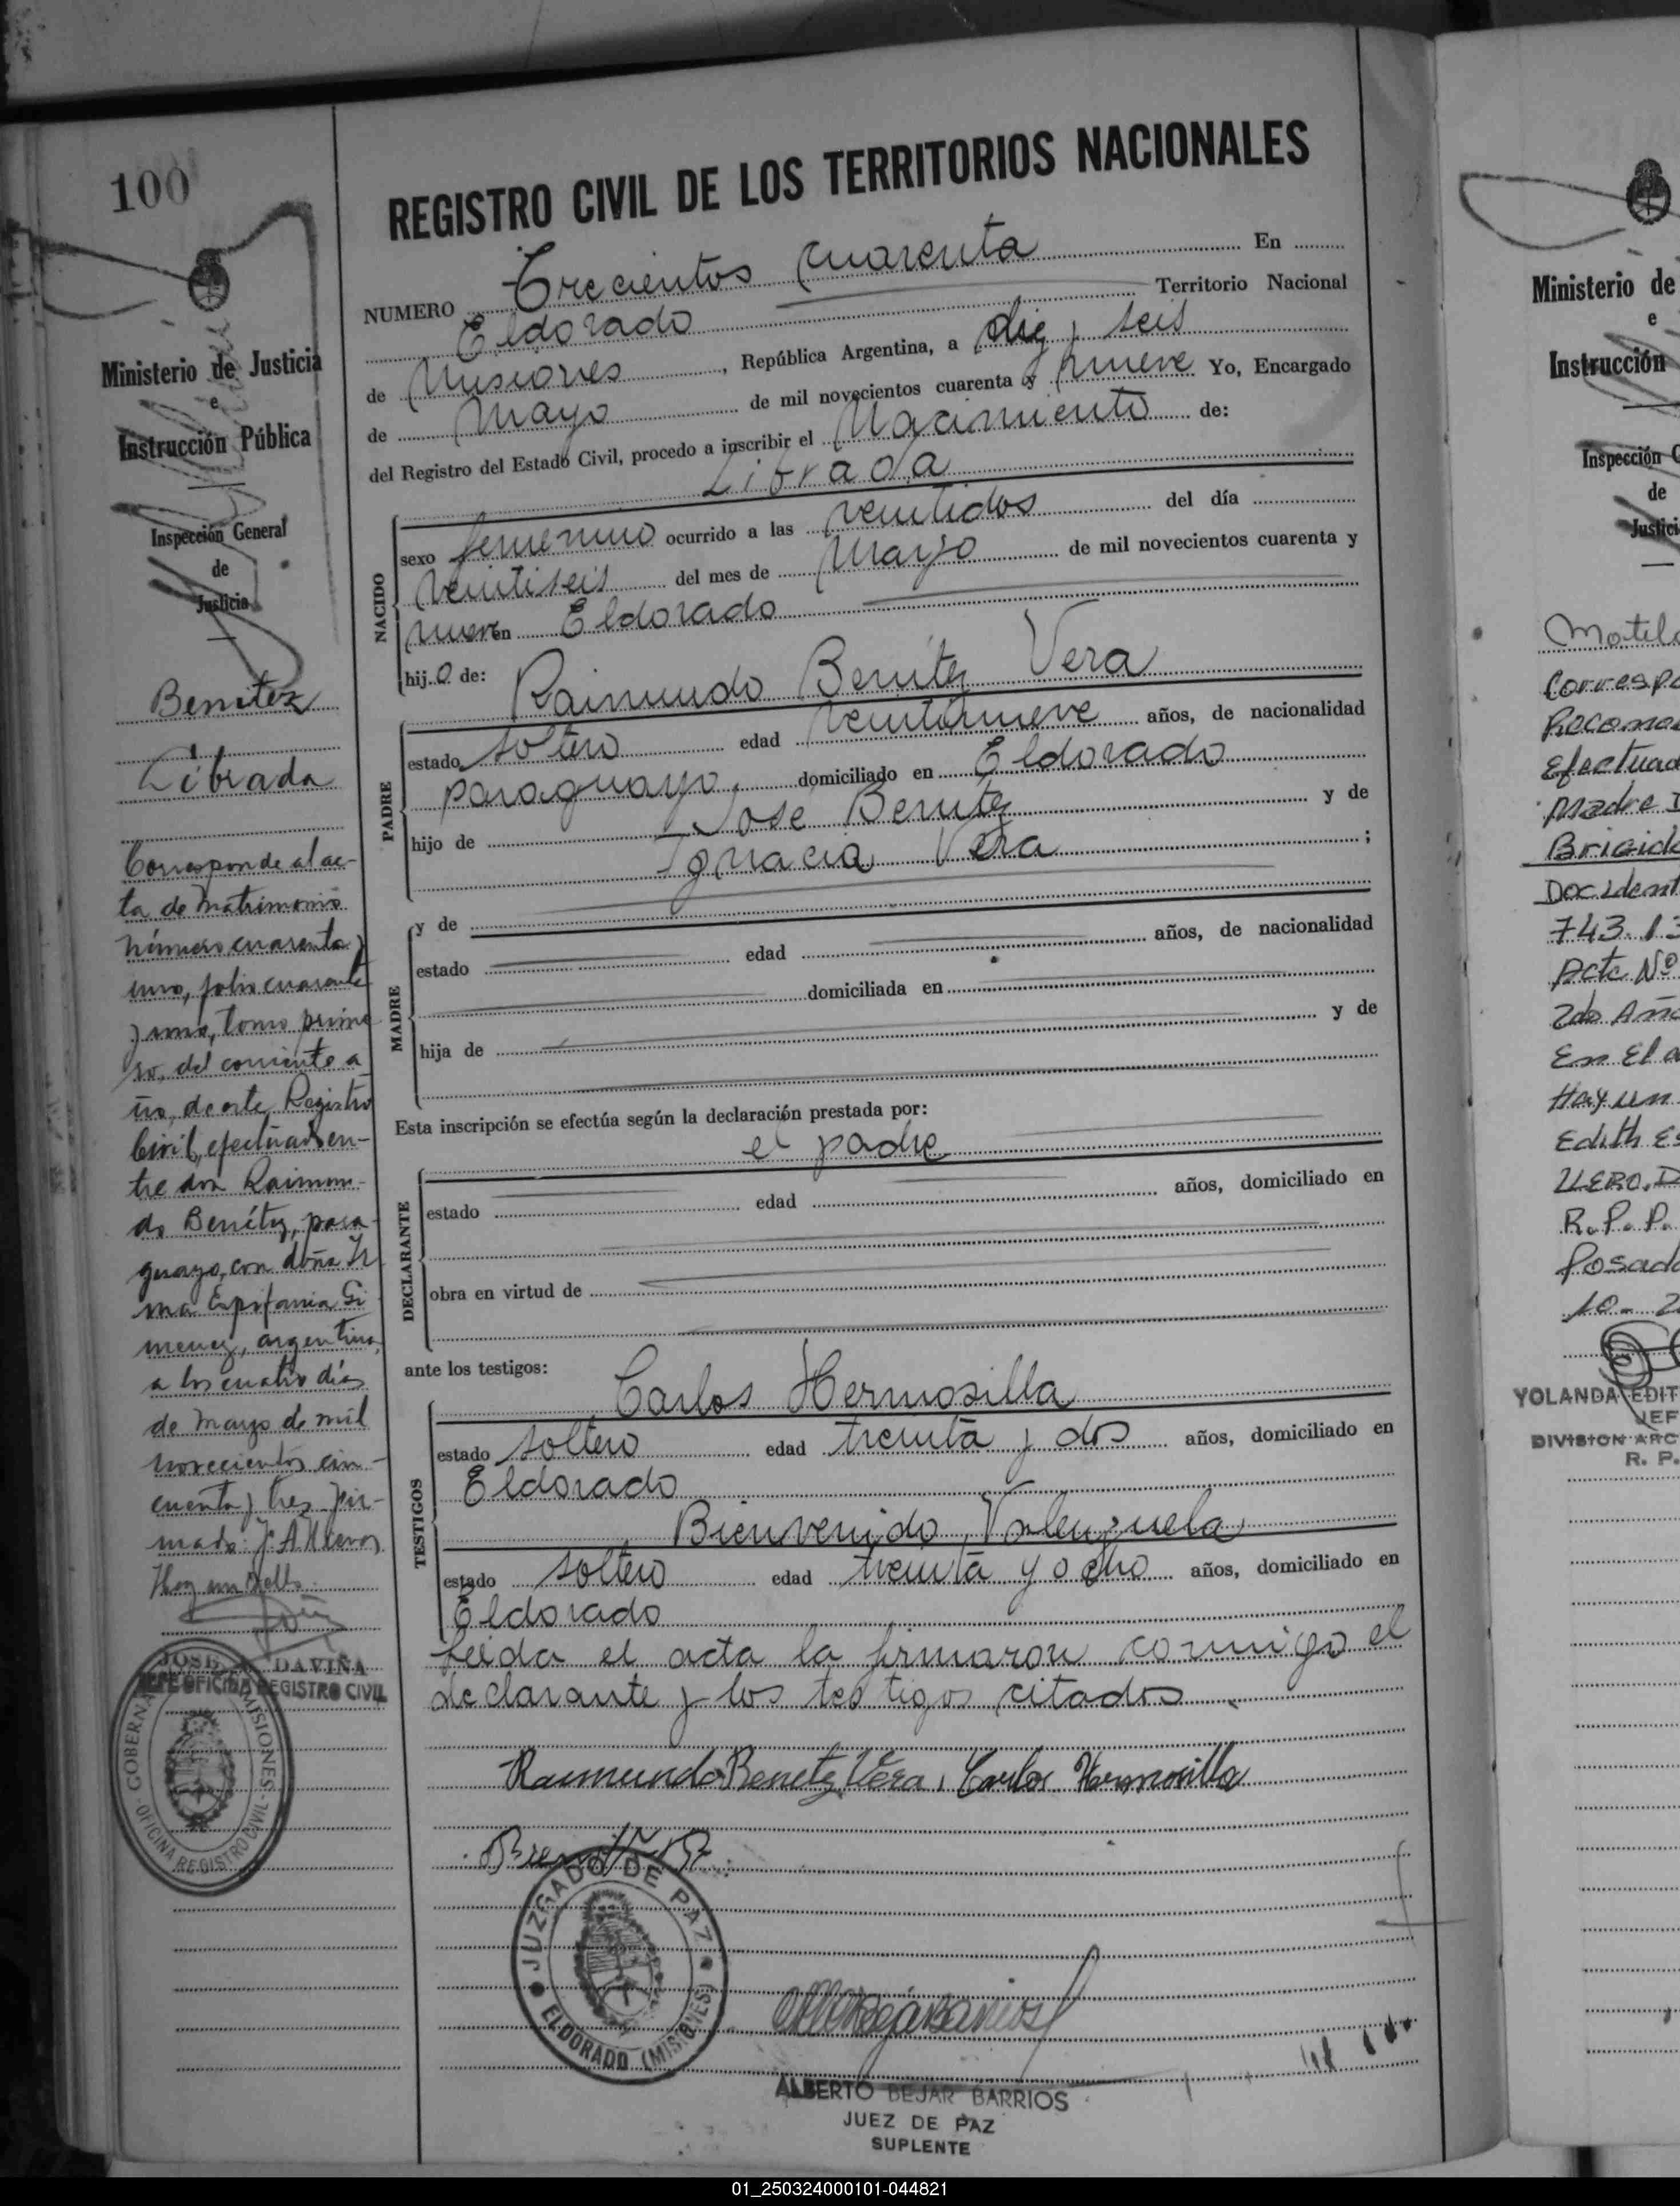 100
REGISTRO CIVIL DE LOS TERRITORIOS NACIONALES
NUMERO Trecientos cuarenta En
Eldorado Territorio Nacional
de Misiones, República Argentina, a diez y seis
de Mayo de mil novecientos cuarenta y nueve Yo, Encargado
del Registro del Estado Civil, procedo a inscribir el Nacimiento de:
Librada
NACIDO
sexo femenino ocurrido a las veintidos del día
veintiseis del mes de Mayo de mil novecientos cuarenta y
nueve en Eldorado
hij o de:
Raimundo Benítez Vera
PADRE
estado soltero edad veintinueve años, de nacionalidad
paraguayo, domiciliado en Eldorado
hijo de José Benítez y de
Ignacia Vera ;
MADRE
y de
estado edad años, de nacionalidad
domiciliada en
hija de y de
Esta inscripción se efectúa según la declaración prestada por:
el padre
DECLARANTE
estado edad años, domiciliado en
obra en virtud de
ante los testigos:
Carlos Hermosilla
TESTIGOS
estado soltero edad treinta y dos años, domiciliado en
Eldorado
Bienvenido Valenzuela
estado soltero edad treinta y ocho años, domiciliado en
Eldorado
Leida el acta la firmaron conmigo el
declarante y los testigos citados
Raimundo Benitez Vera, Carlos Hermosilla
JUZGADO DE PAZ
ELDORADO (MISIONES)
ALBERTO BEJAR BARRIOS
JUEZ DE PAZ
SUPLENTE
Ministerio de Justicia
e
Instrucción Pública
Inspección General
de
Justicia
Benitez
Librada
Corresponde al ac-
ta de Matrimonio
número cuarenta y
uno, folio cuarenta
y uno, tomo prime
ro, del corriente a
ño, de este Registro
Civil, efectuado en-
tre don Raimun-
do Benítez, para-
guayo, con doña Ir
ma Epifania Gi
menez, argentina,
a los cuatro días
de Mayo de mil
novecientos cin-
cuenta y tres fir-
mado: J. A.
Hay un sello.
JOSE DAVIÑA
JEFE OFICINA REGISTRO CIVIL
GOBERNA MISIONES
OFICINA REGISTRO CIVIL
Ministerio de
e
Instrucción
Inspección G
de
Justici
Correspo
Reconoc
Efectuad
Madre D
Brigida
Doc. Ident
743.13
Acta Nº
2do Año
En El
Hay un
Edith Es
R.P.P.
Posada
10-2
YOLANDA EDIT
JEF
DIVISION ARC
R. P.
01_250324000101-044821